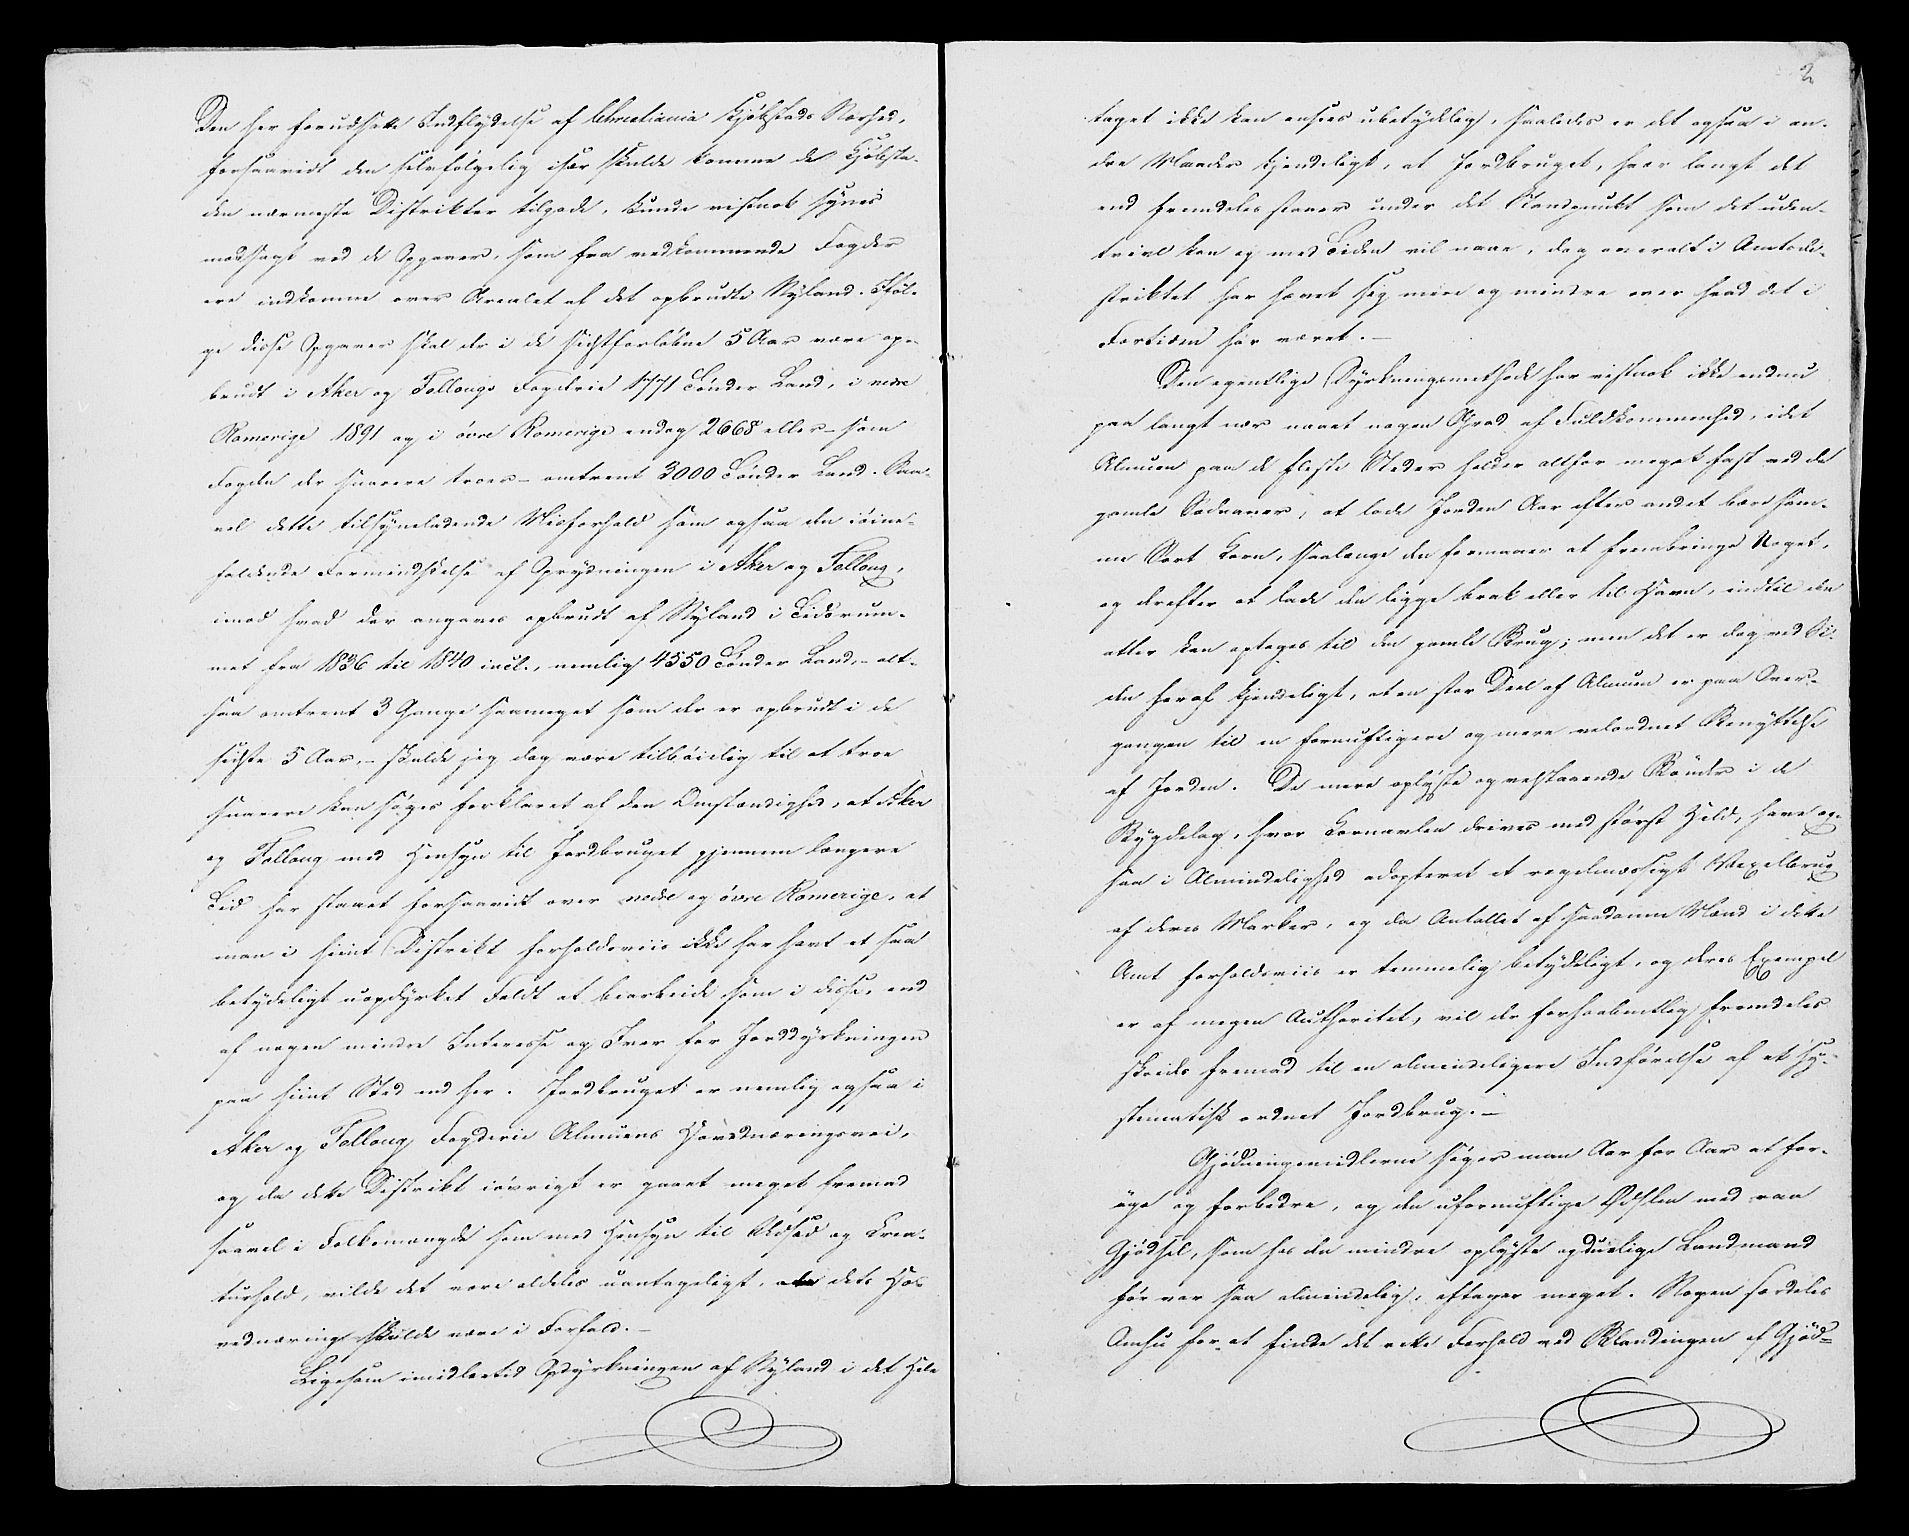 Den her forudsatte Indflydelse af Christiania Kjöbstads Nærhed,
forsaavidt den selvfölgelig især skulde komme de Kjöbsta-
den nærmeste Distrikter tilgode, kunde vistnok synes
modsagt ved de Opgaver, som fra vedkommende Fogder
ere indkomne over Arealet af det opbrudte Nyland. Ifôl-
ge disse Opgaver skal der i de sidstforløbne 5 Aar være op-
brudt i Aker og Follougs Fogderie 1771 Tönder Land, i nedre
Romerige 1891 og i övre Romerige endog 2668 eller – som
Fogden der snarere troer – omtrent 3000 Tönder Land. Saa-
vel dette tilsyneladende Misforhold som ogsaa den iöine-
faldende Formindskelse af Oprydningen i Aker og Folloug,
imod hvad der angaves opbrudt af Nyland i Tidsrum-
met fra 1836 til 1840 incl., nemlig 4550 Tönder Land, – alt-
saa omtrent 3 Gange saameget som der er opbrudt i de
sidste 5 Aar, – skulde jeg dog være tilböielig til at troe
snarere kan söges forklaret af den Omstændighed, at Aker
og Folloug med Hensyn til Jordbruget gjennem længere
Tid har staaet forsaavidt over nedre og övre Romerige, at
man i hiint Distrikt forholdsviis ikke har havt et saa
betydeligt uopdyrket Feldt at bearbeide som i disse, end
af nogen mindre Interesse og Iver for Jorddyrkningen
paa hiint Sted end her. Jordbruget er nemlig ogsaa i
Aker og Folloug Fogderie Almuens Hovednæringsvei,
og da dette Distrikt iövrigt er gaaet meget fremad
saavel i Folkemængde som med Hensyn til Udsæd og Krea-
turhold, vilde det være aldeles uantageligt, at dets Ho-
vednæring skulde være i Forfald. –
Ligesom imidlertid Opdyrkningen af Nyland i det Hele
2
taget ikke kan ansees ubetydelig, saaledes er det ogsaa i an-
dre Maader kjendeligt, at Jordbruget, hvor langt det
end fremdeles staaer under det Standpunkt som det uden-
tvivl kan og med Tiden vil naae, dog overalt i Amtsdi-
striktet har hævet sig mere og mindre over hvad det i
Fortiden har været. –
Den egentlige Dyrkningsmethode har vistnok ikke endnu
paa langt nær naaet nogen Grad af Fuldkommenhed, idet
Almuen paa de fleste Steder holder altfor meget fast ved de
gamle Sædvaner, at lade Jorden Aar efter andet bære sam-
me Sort Korn, saalænge den formaaer at frembringe Noget,
og derefter at lade den ligge brak eller til Havn, indtil den
atter kan optages til den gamle Brug; men det er dog ved Si-
den heraf kjendeligt, at en stor Deel af Almuen er paa Over-
gangen til en fornuftigere og mere velordnet Benyttelse
af Jorden. De mere oplyste og velstaaende Bönder i de
Bygdelag, hvor Kornavlen drives med störst Held, have og-
saa i Almindelighed adopteret et regelmæssigt Vexelbrug
af deres Marker, og da Antallet af saadanne Mænd i dette
Amt forholdsviis er temmelig betydeligt, og deres Exempel
er af megen Authoritet, vil der forhaabentlig fremdeles
skrides fremad til en almindeligere Indförelse af et sy-
stematisk ordnet Jordbrug. –
Gjödningsmidlerne söger man Aar for Aar at for-
öge og forbedre, og den ufornuftige Ödslen med raa
Gjödsel, som hos den mindre oplyste og duelige Landmand
för var saa almindelig, aftager meget. Nogen særdeles
Omhu for at finde det rette Forhold ved Blandingen af Gjöd-